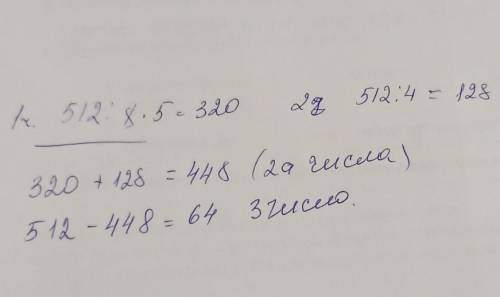 1ч. 512 : 8 · 5 = 320 2д 512 : 4 = 128
320 + 128 = 448 (2а числа)
512 - 448 = 64 3 число.